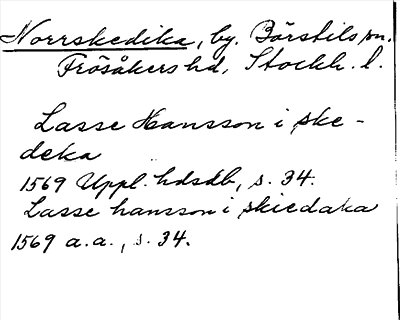 Norrskedika, by. Börstils sn.
Frösåkers hd, Stockh. l.
Lasse Hansson i ske-
deka
1569 Uppl. hdsdb, s. 34.
Lasse hansson i skiedaka
1569 a.a., s. 34.